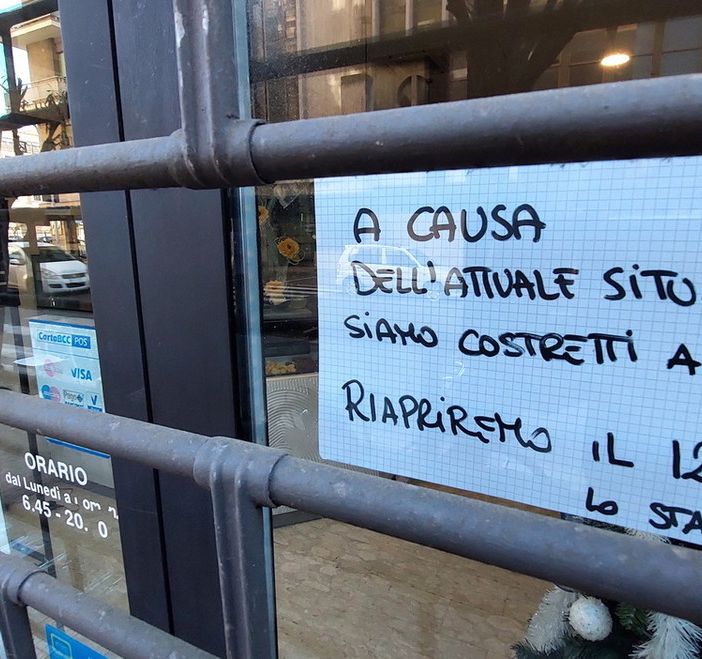 A CAUSA
DELL'ATTUALE SITU
SIAMO COSTRETTI A
RIAPRIREMO IL 12
LO STA
CartaBCC POS
VISA
ORARIO
dal Lunedì a
6.45 - 20. 0